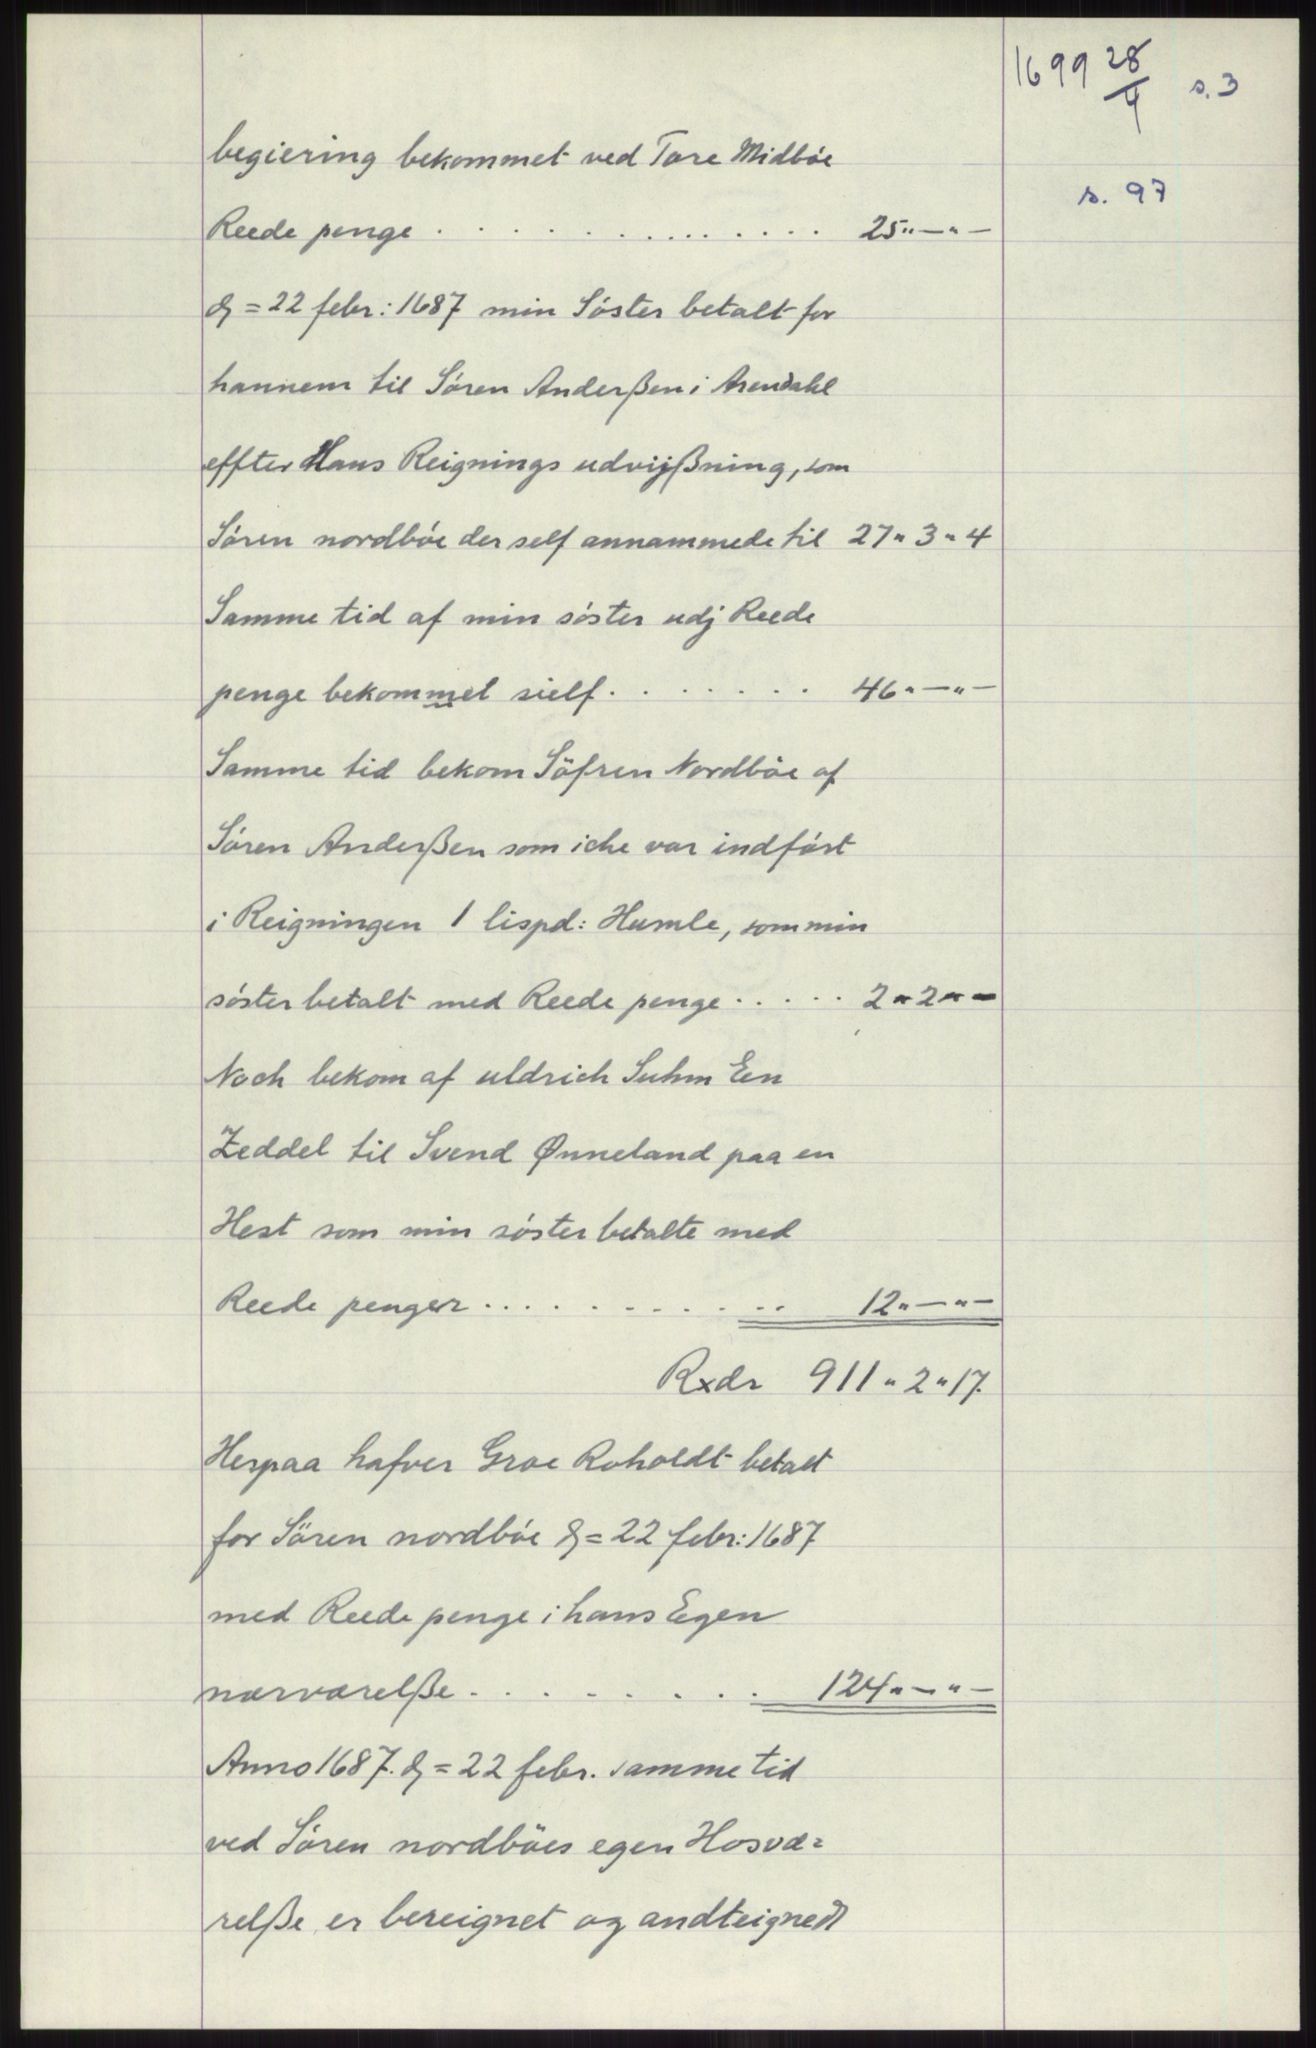 1699 28/4 s. 3
s. 97
begiering bekommet ved Tore Midbóe
Reede penge . . . . . . . . . . . . . . . 25"—"—
d = 22 febr: 1687 min Sóster betalt for
hannem til Sóren Anderßen i Arendahl
effter Hans Reignings udvijßning, som
Sóren nordbóe der self annammede til 27" 3" 4
Samme tid af min sóster udj Reede
penge bekommet sielf . . . . . . . 46"—"—
Samme tid bekom Söfren Nordbóe af
Sóren Anderßen som iche var indfórt
i Reigningen 1 lispd: Humle, som min
sóster betalt med Reede penge . . . . . 2" 2"—
Noch bekom af uldrich Suhm Een
Zeddel til Svend Ønneland paa en
Hest som min sóster betalte med
Reede penger . . . . . . . . . . . 12"—"—
Rxdr 911" 2" 17.
Herpaa hafver Groe Roholdt betalt
for Sören nordbóe d = 22 febr: 1687
med Reede penge i hans Egen
nærværelße . . . . . . . . . 124"—"—
Anno 1687. d = 22 febr. samme tid
ved Sóren nordböes egen Hosvæ=
relße er bereignet og andteignedt